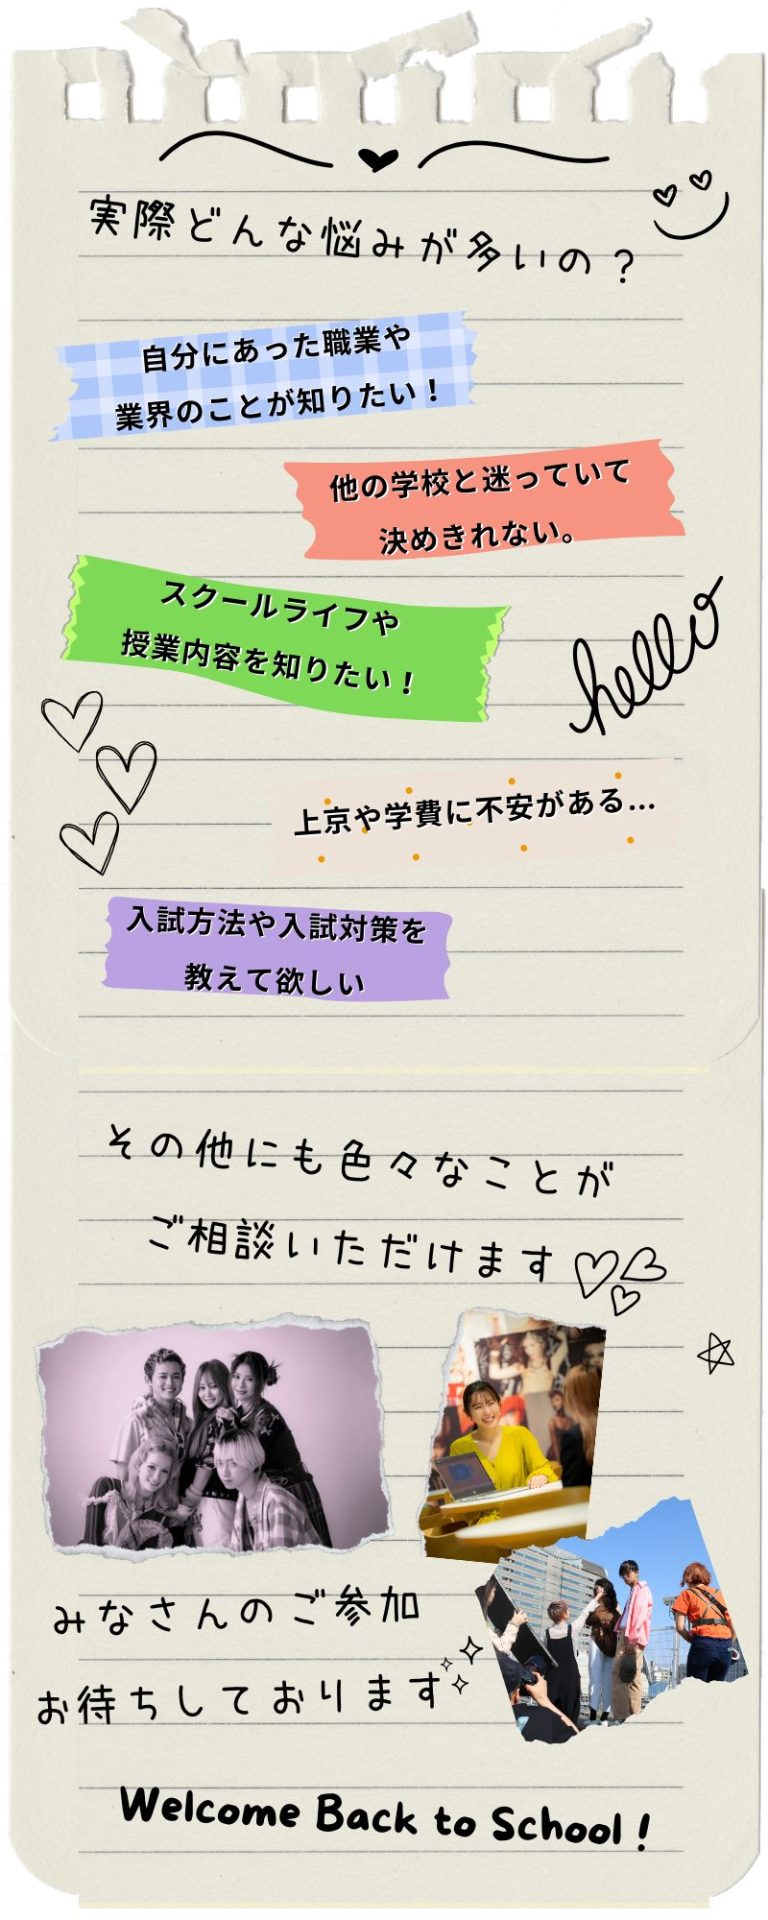 実際どんな悩みが多いの？
自分にあった職業や
業界のことが知りたい！
他の学校と迷っていて
決めきれない。
スクールライフや
授業内容を知りたい！
hello
上京や学費に不安がある...
入試方法や入試対策を
教えて欲しい
その他にも色々なことが
ご相談いただけます
みなさんのご参加
お待ちしております
Welcome Back to School !